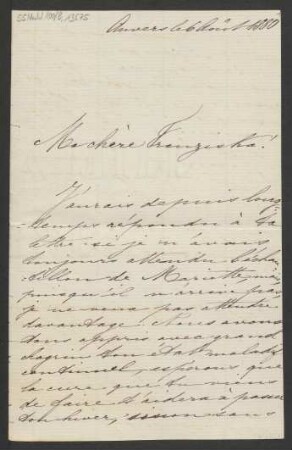 Anvers le 6 Août 1880
Ma chère Franziska!
J'aurais depuis long-
temps répondu à ta
lettre si je n'avais
toujours attendu
de Mariette, mais
puisqu'il n'arrive pas
je ne veux pas attendre
davantage! Nous avons
tous appris avec grand
chagrin ton état maladif
continuel, espérons que
la cure que tu viens
de faire t'aidera à passer
ton hiver, sinon sans